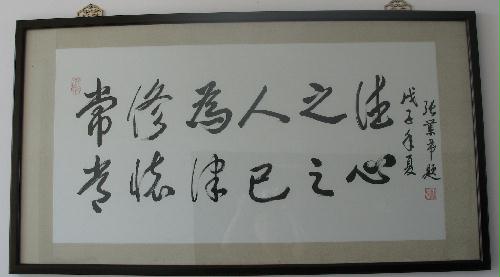 常修為人之德
常懷律己之心
戊子年夏
張業希題